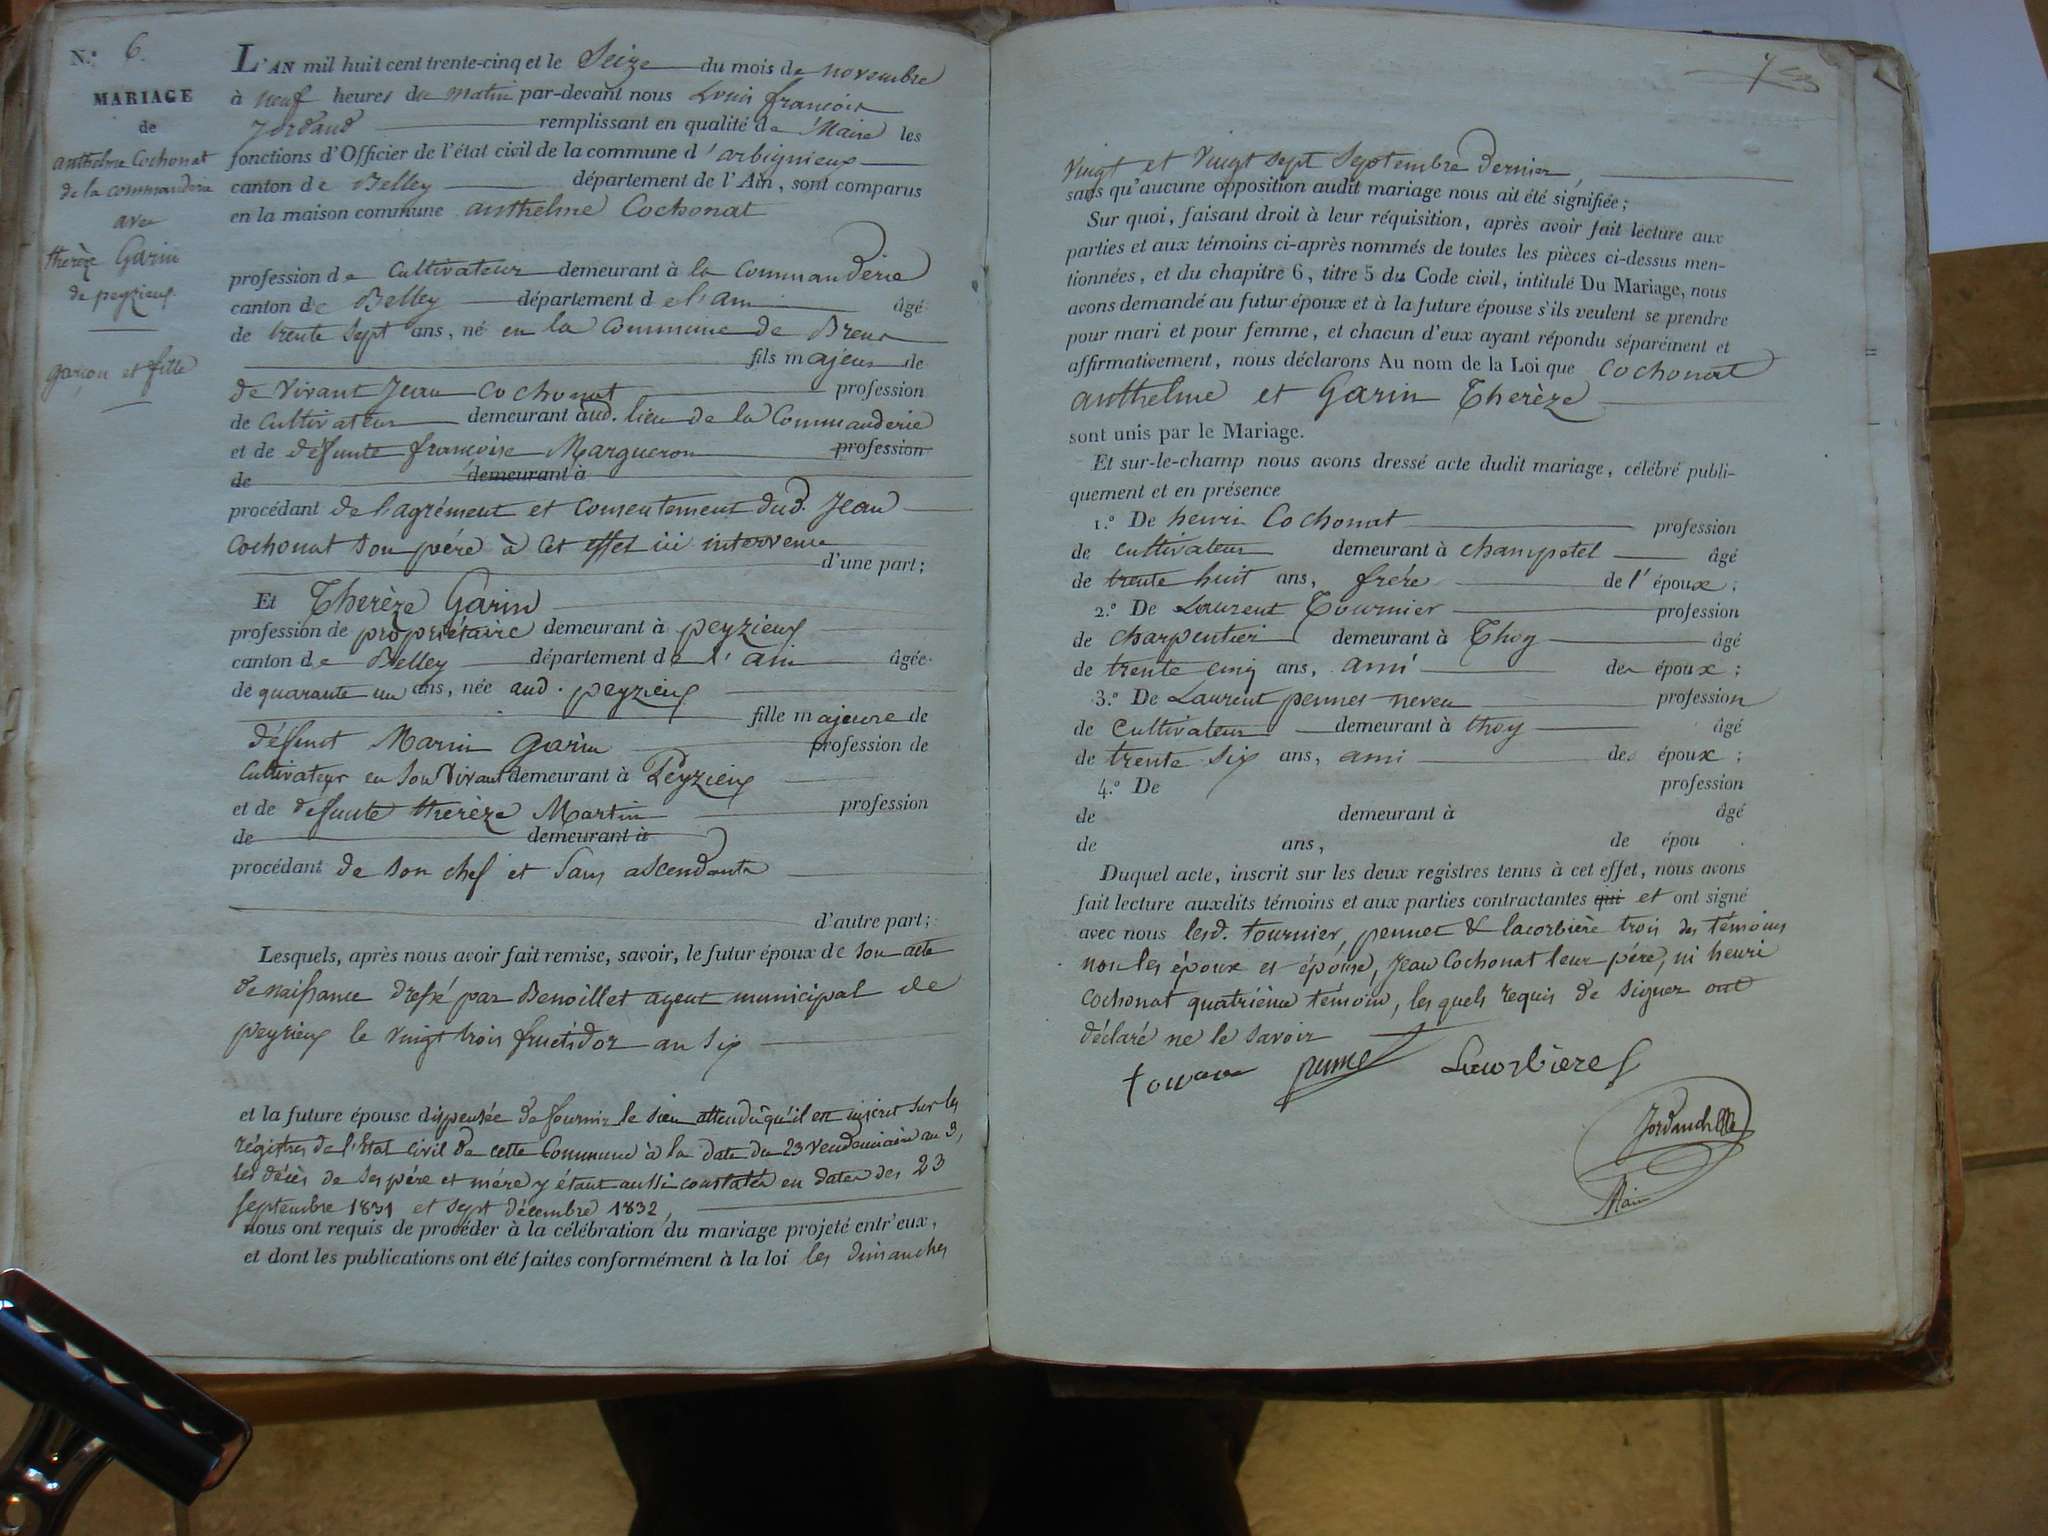 N.° 6.
MARIAGE
de
anthelme Cochonat
de la commanderie
avec
therèze Garin
de peyzieux
garçon et fille
L'AN mil huit cent trente-cinq et le Seize du mois de novembre
à neuf heures du matin par-devant nous Louis françois
Jordand remplissant en qualité de Maire les
fonctions d'Officier de l'état civil de la commune d'arbignieux
canton de Belley département de l'Ain, sont comparus
en la maison commune anthelme Cochonat
profession de Cultivateur demeurant à la Commanderie
canton de Belley département de l'ain âgé
de trente sept ans, né en la Commune de Brens
fils majeur de
de vivant Jean Cochonat profession
de Cultivateur demeurant aud. lieu de la Commanderie
et de défunte françoise Margueron profession
de demeurant à
procédant de l'agrément et Consentement dud. Jean
Cochonat Son père à Cet effet ici intervenu
d'une part;
Et Therèze Garin
profession de propriétaire demeurant à peyzieux
canton de Belley département de l'ain âgée
de quarante un ans, née aud. peyzieux
fille majeure de
défunt Marin Garin profession de
Cultivateur en son vivant demeurant à Peyzieux
et de defunte therèze Martin profession
de demeurant à
procédant de son chef et Sans ascendants
d'autre part;
Lesquels, après nous avoir fait remise, savoir, le futur époux de son acte
de naissance dressé par Benoillet agent municipal de
peyrieux le vingt trois fructidor an six
et la future épouse dispensée de fournir le sien attendu qu'il est inscrit sur les
régistres de l'Etat civil de cette Commune à la date du 23 vendemiaire an 3,
les décès de ses père et mère y étant aussi constatés en dates des 23
septembre 1831 et sept décembre 1832,
nous ont requis de procéder à la célébration du mariage projeté entr'eux,
et dont les publications ont été faites conformément à la loi les dimanches
vingt et vingt sept Septembre dernier,
sans qu'aucune opposition audit mariage nous ait été signifiée;
Sur quoi, faisant droit à leur réquisition, après avoir fait lecture aux
parties et aux témoins ci-après nommés de toutes les pièces ci-dessus men-
tionnées, et du chapitre 6, titre 5 du Code civil, intitulé Du Mariage, nous
avons demandé au futur époux et à la future épouse s'ils veulent se prendre
pour mari et pour femme, et chacun d'eux ayant répondu séparément et
affirmativement, nous déclarons Au nom de la Loi que Cochonat
anthelme et Garin Therèze
sont unis par le Mariage.
Et sur-le-champ nous avons dressé acte dudit mariage, célébré publi-
quement et en présence
1.° De henri Cochonat profession
de cultivateur demeurant à champetel âgé
de trente huit ans, frère de l'époux;
2.° De Laurent Tournier profession
de charpentier demeurant à Thoy âgé
de trente cinq ans, ami des époux;
3.° De Laurent pennet neveu profession
de Cultivateur demeurant à thoy âgé
de trente six ans, ami des époux;
4.° De profession
de demeurant à âgé
de ans, de épou .
Duquel acte, inscrit sur les deux registres tenus à cet effet, nous avons
fait lecture auxdits témoins et aux parties contractantes qui et ont signé
avec nous lesd. tournier, pennet & lacorbière trois des témoins
non les époux et épouse, Jean Cochonat leur père, ni henri
Cochonat quatrième témoin, les quels requis de signer ont
déclaré ne le savoir
pennet Lacorbiere
Maire